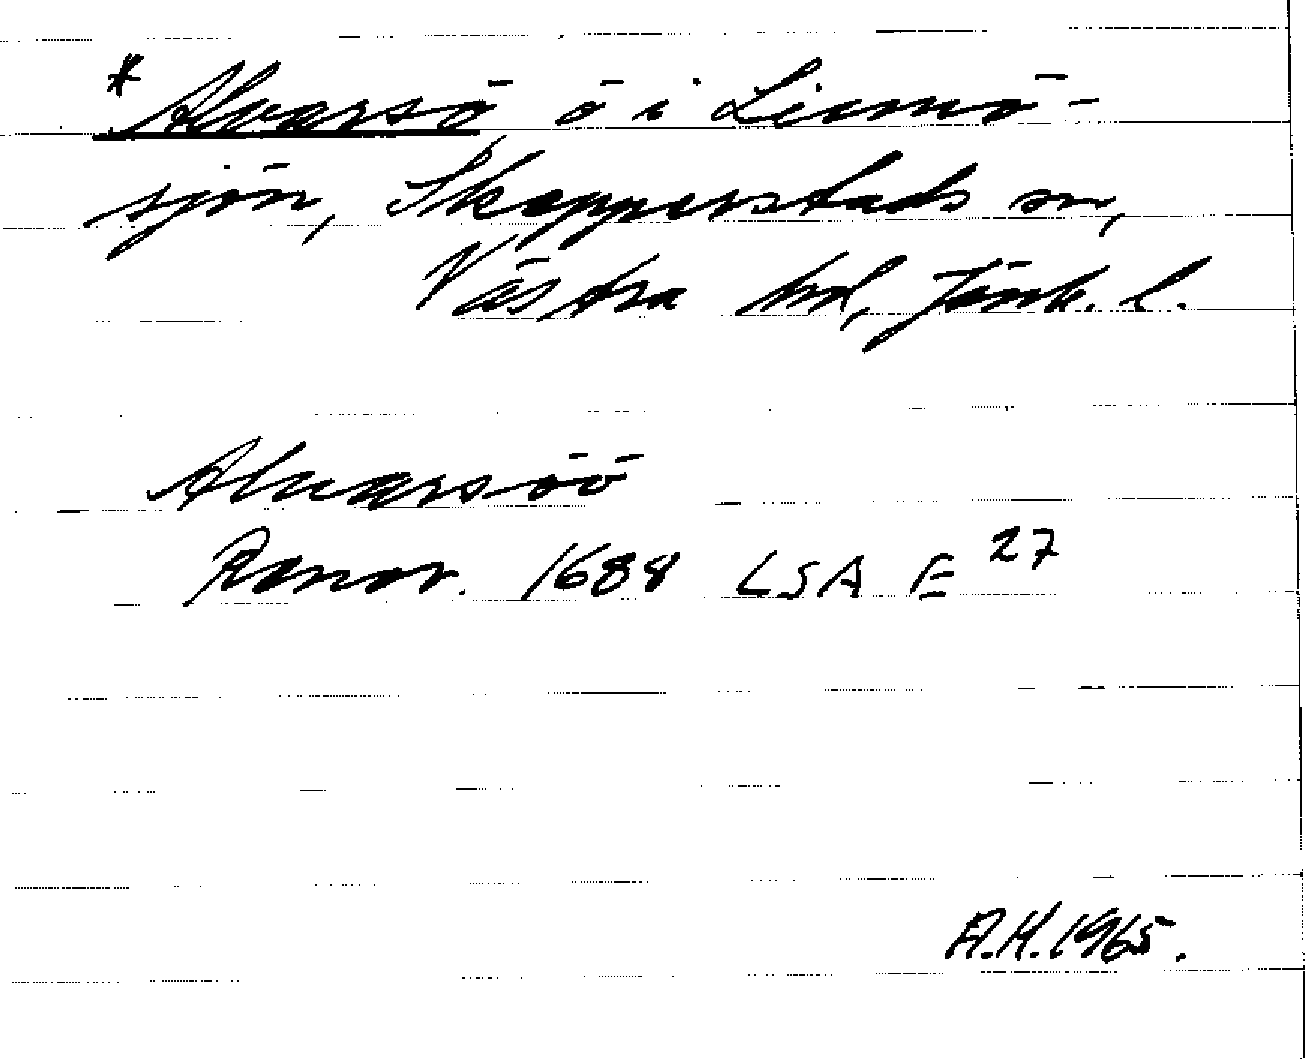 *Alvarsö ö i Linnö-
sjön, Skepperstads sn,
Västra hd, Jönk. l.
Alvarsöö
Rannr. 1688 LSA E 27
A.H. 1965.